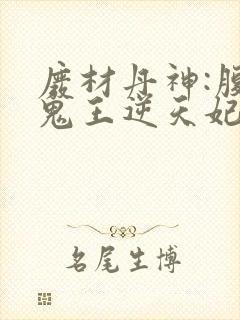 废材丹神:腹
鬼王逆天妃
名尾生博